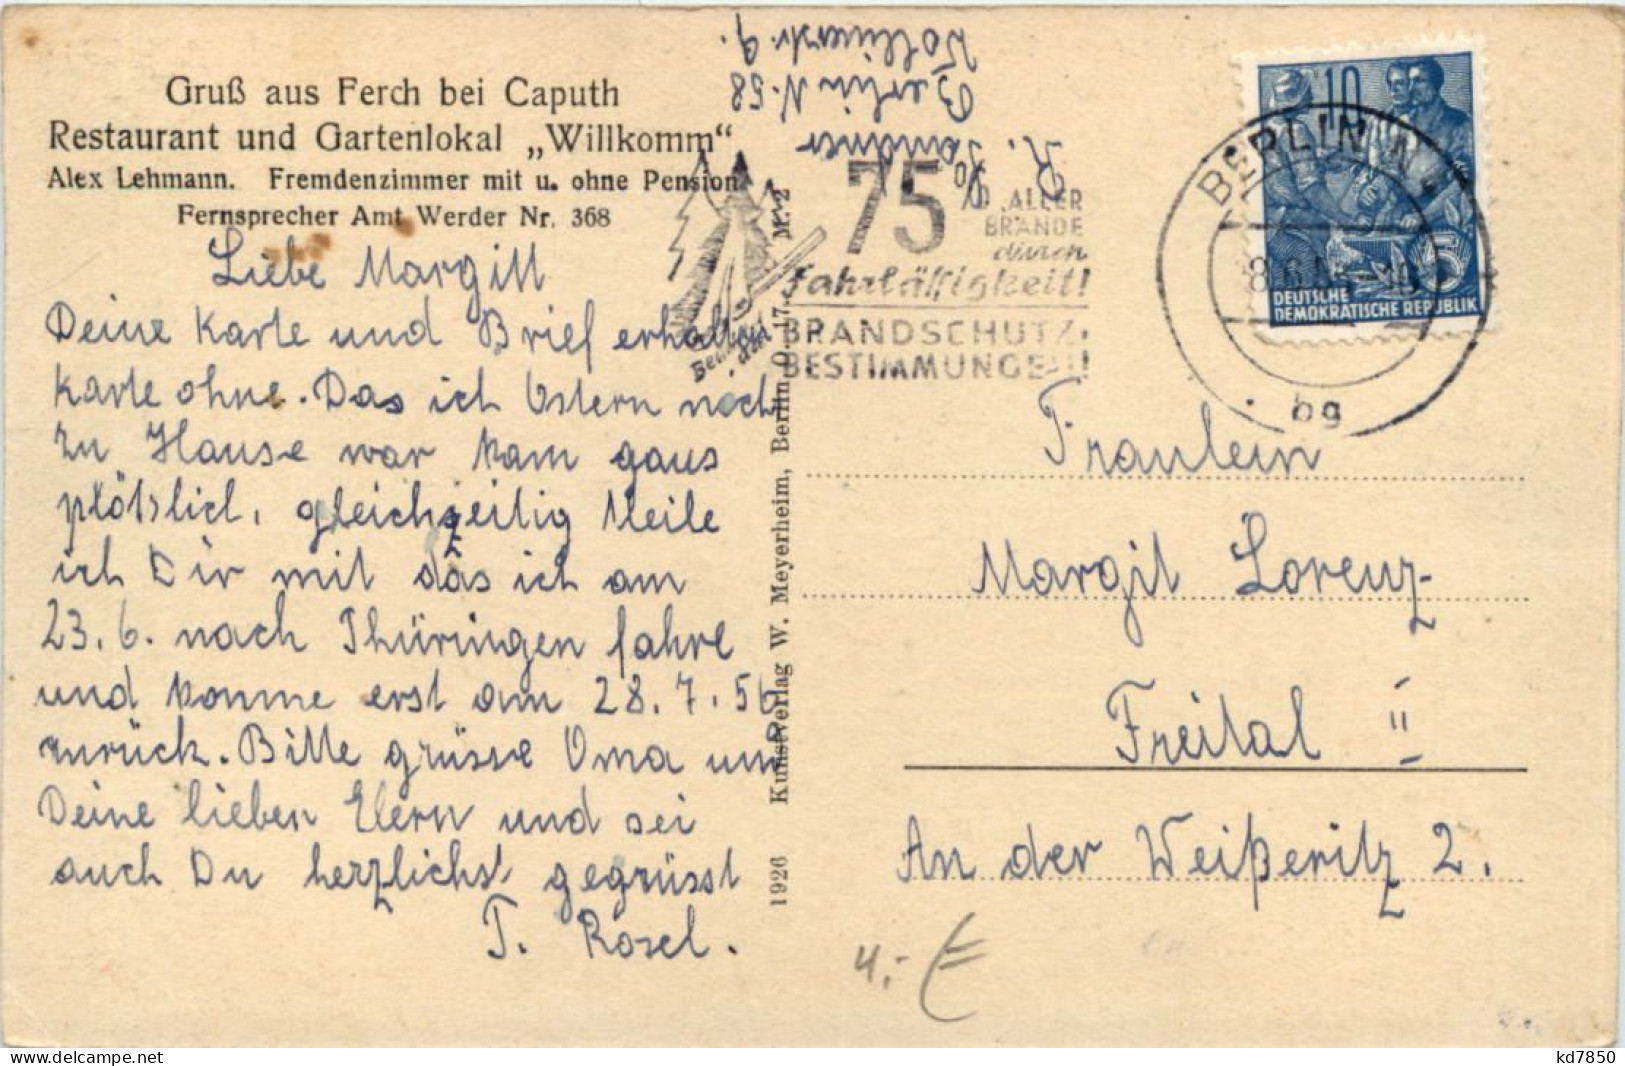 Gruß aus Ferch bei Caputh
Restaurant und Gartenlokal „Willkomm“
Alex Lehmann. Fremdenzimmer mit u. ohne Pension
Fernsprecher Amt Werder Nr. 368
Liebe Margitt
Deine Karte und Brief erhalten
Karte ohne. Das ich Ostern noch
zu Hause war kam gans
plötslich, gleichzeitig Teile
ich Dir mit das ich am
23.6. nach Thüringen fahre
und komme erst am 28.7.56
zurück. Bitte grüsse Oma und
Deine lieben Elern und sei
auch Du herzlichst gegrüsst
T. Rosel.
1926 Kunstverlag W. Meyerheim, Berlin O 17. M. 2
R.
Berlin N. 58
9.
75% ALLER
BRÄNDE
durch
Fahrläßigkeit!
BRANDSCHUTZ-
BESTIMMUNGEN!
10
DEUTSCHE
DEMOKRATISCHE REPUBLIK
5
BERLIN N
bg
Fräulein
Margit Lorenz
Freital II
An der Weißeritz 2.
4.- €
kd7850